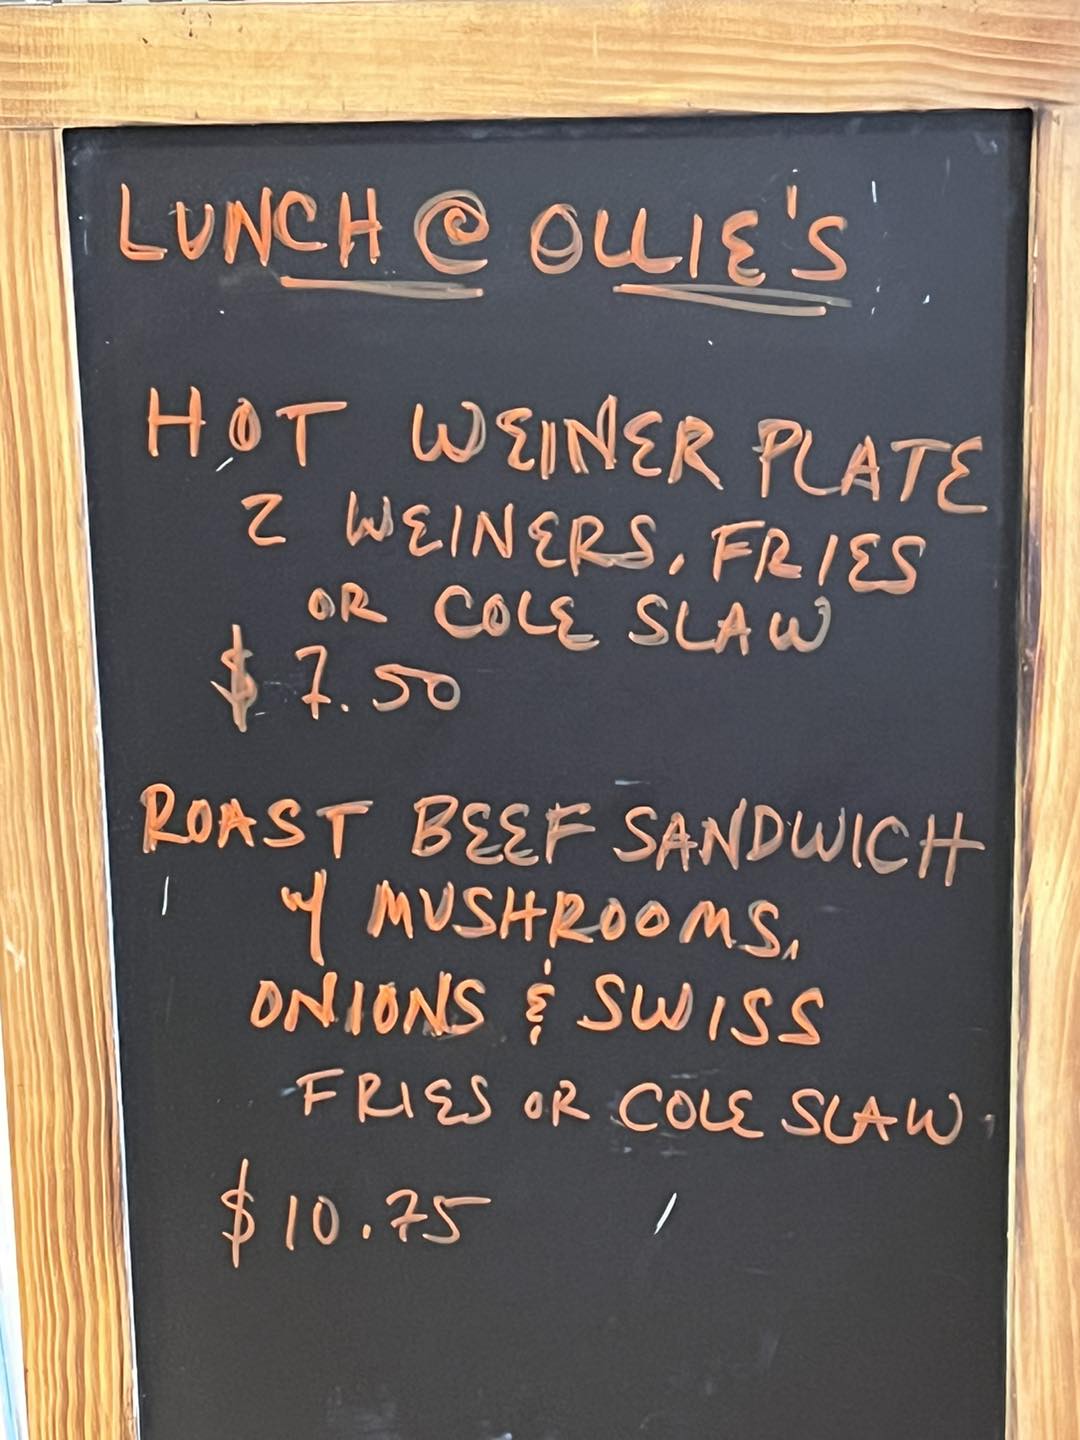 LUNCH @ OLLIE'S
HOT WEINER PLATE
2 WEINERS, FRIES
OR COLE SLAW
$7.50
ROAST BEEF SANDWICH
W/ MUSHROOMS,
ONIONS & SWISS
FRIES OR COLE SLAW
$10.75